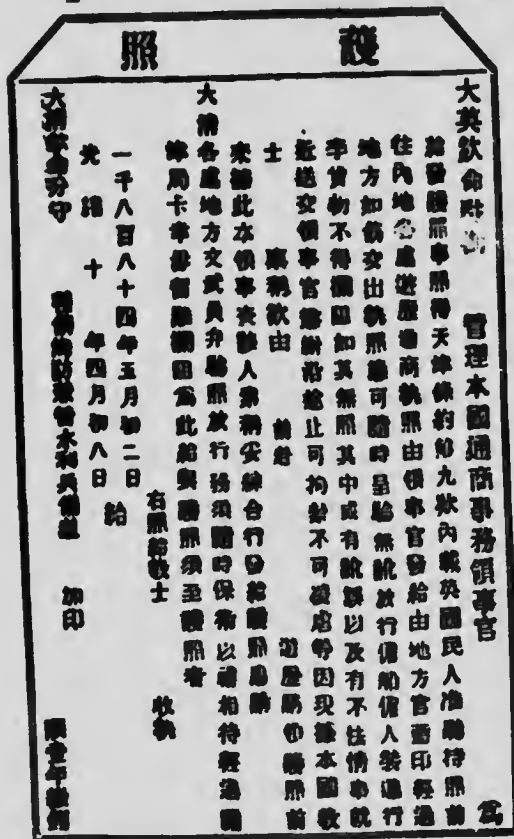 護照
大英欽命駐 管理本國通商事務領事官 為
給發護照事照得天津條約第九款內載英國民人准聽持照前
往內地各處遊歷通商執照由領事官發給由地方官蓋印經過
地方如飭交出執照應可隨時呈驗無訛放行僱船僱人裝運行
李貨物不得攔阻如其無照其中或有訛誤以及有不法情事就
近送交領事官懲辦沿途止可拘禁不可凌虐等因現據本國教
士 稟稱欲由 前赴 遊歷 護照前
來據此本領事 人 稱妥練合行發給護照為請
大清各處地方文武員弁驗照放行務須隨時保衛以禮相待經過關
津局卡幸毋留難攔阻為此給與護照須至護照者
右照給教士 收執
一千八百八十四年五月初二日
給
光緒十年四月初八日
大清欽命分守 兵備道 加印
限壹年繳銷